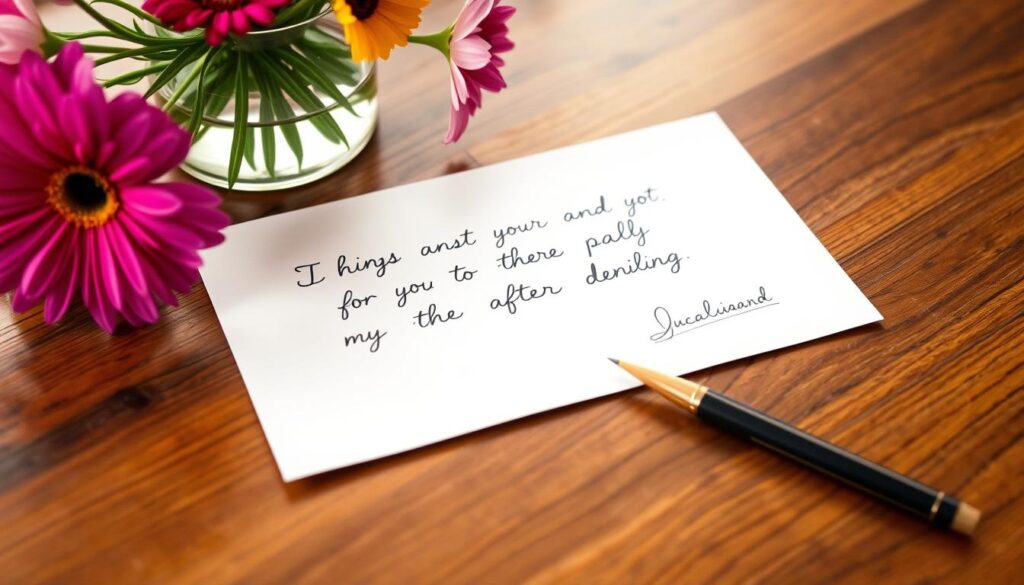 I hings anst your and yot.
for you to there pally
my the after deniling.
Jucaliisand